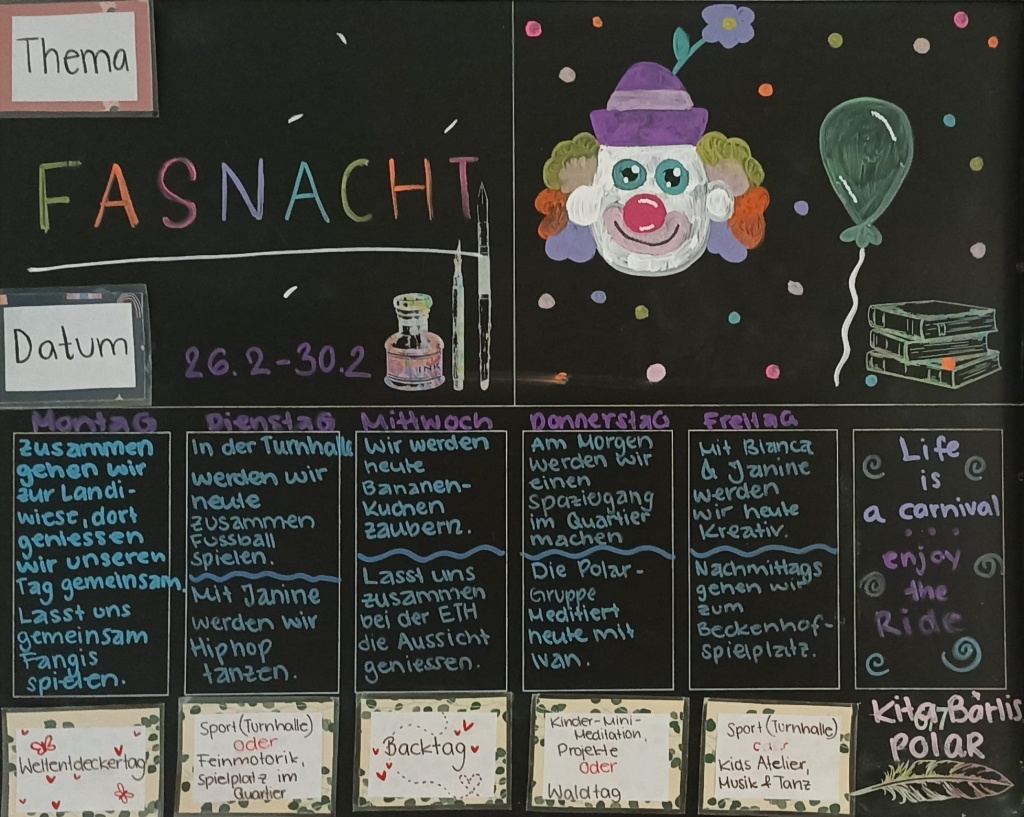 Thema
FASNACHT
Datum
26.2-30.2
INK
Montag
zusammen
gehen wir
zur Landi-
wiese, dort
geniessen
wir unseren
Tag gemeinsam,
Lasst uns
gemeinsam
Fangis
spielen.
Dienstag
In der Turnhalle
werden wir
heute
zusammen
Fussball
spielen.
Mit Janine
werden wir
Hiphop
tanzen.
Mittwoch
Wir werden
heute
Bananen-
kuchen
zaubern.
Lasst uns
zusammen
bei der ETH
die Aussicht
geniessen.
Donnerstag
Am Morgen
werden wir
einen
Spaziegang
im Quartier
machen
Die Polar-
Gruppe
Meditiert
heute mit
Ivan.
Freitag
Mit Bianca
& Janine
werden
wir heute
Kreativ.
Nachmittags
gehen wir
zum
Beckenhof-
spielplatz.
Life
is
a carnival
enjoy
the
Ride
Weltentdeckertag
Sport (Turnhalle)
oder
Feinmotorik,
Spielplatz im
Quartier
Backtag
Kinder-Mini-
Meditation,
Projekte
Oder
Waldtag
Sport (Turnhalle)
Kids Atelier,
Musik & Tanz
Kita Börlis
67
POLAR